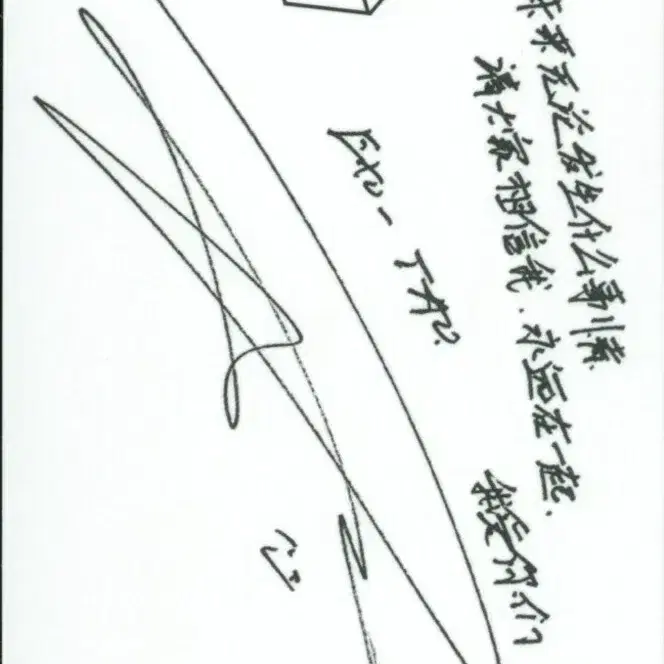 未来无论发生什么事情
请大家相信我、永远在一起、
我爱你们
EXO-TAO.